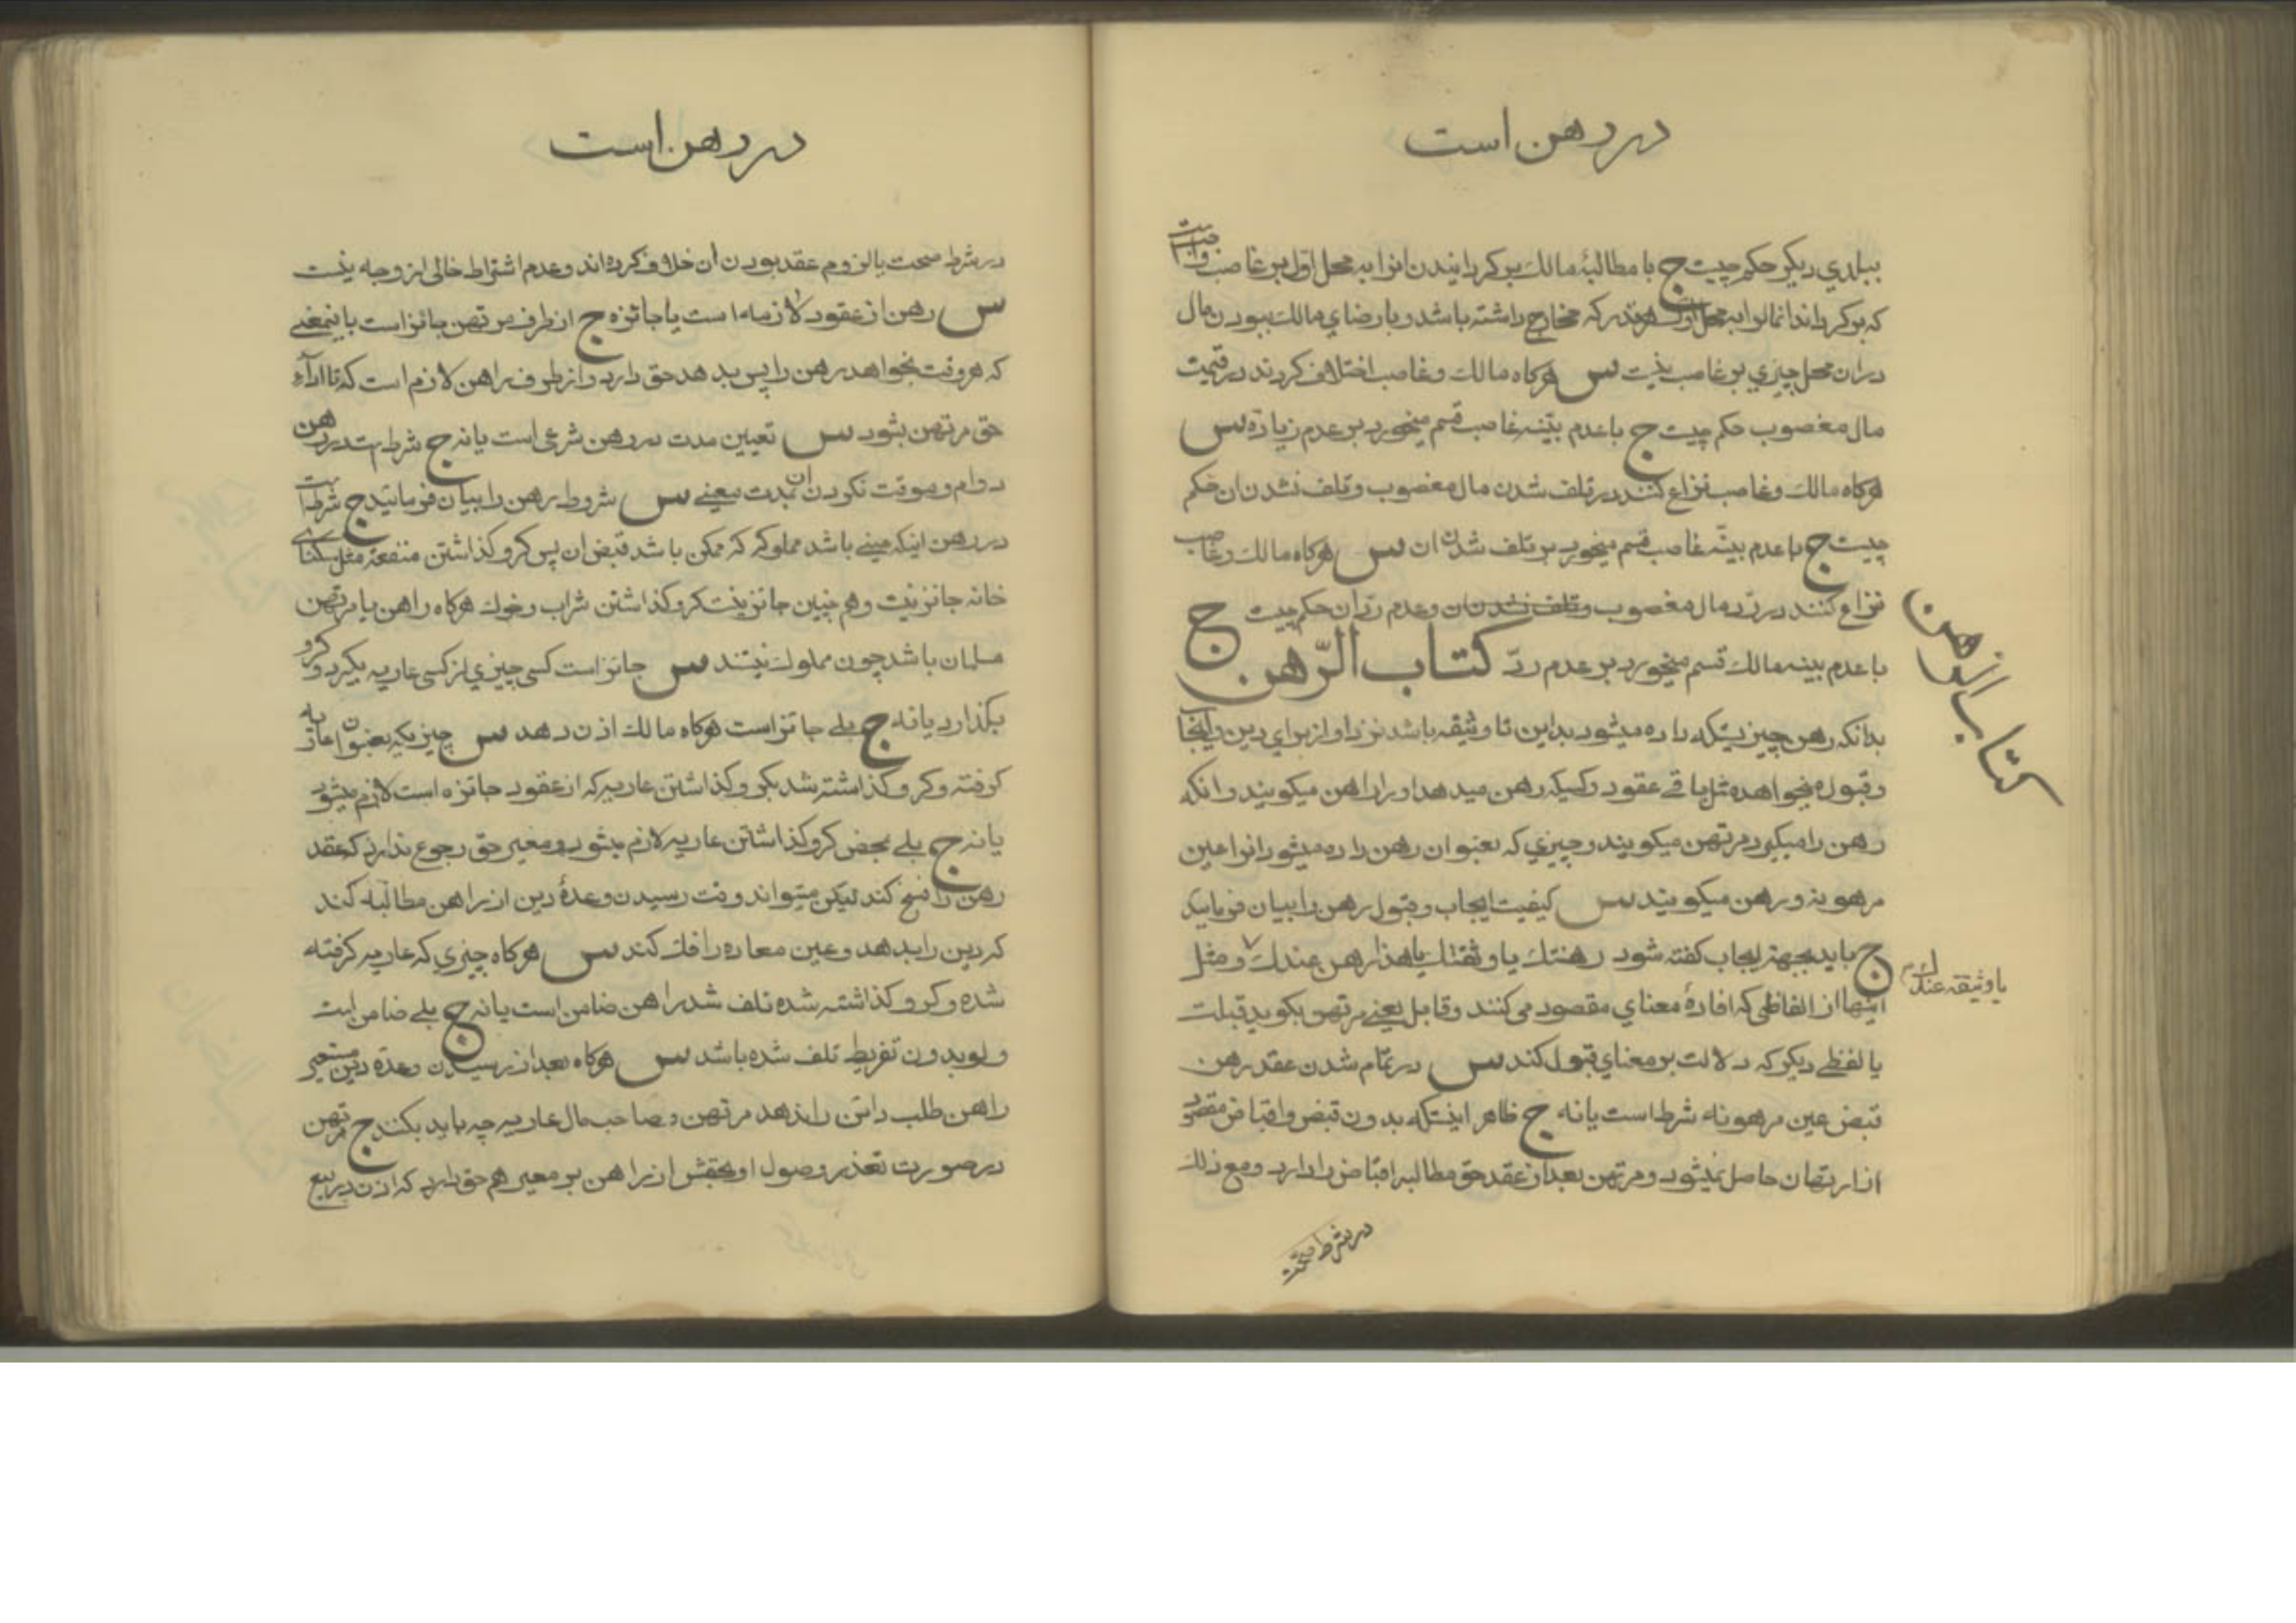 در رهن است
ببلدي ديكر حكم چيست ج با مطالبۀ مالك بر كردانيدن انرا به محل اوّل بر غاصب واجبست
كه بر كرداند انمال را به محل اول هر قدر كه مخارج داشته باشد و با رضاي مالك ببودن مال
در ان محل چيزي بر غاصب نيست س هركاه مالك و غاصب اختلاف كردند در قيمت
مال مغصوب حكم چيست ج با عدم بيّنه غاصب قسم ميخورد بر عدم زياده س
هركاه مالك و غاصب نزاع كنند در تلف شدن مال مغصوب و تلف نشدن ان حكم
چيست ج با عدم بينّه غاصب قسم ميخورد بر تلف شدن ان س هركاه مالك و غاصب
نزاع كنند در ردّ مال مغصوب و تلف نشدن ان و عدم ردّ ان حكم چيست ج
با عدم بينه مالك قسم ميخورد بر عدم ردّ كتاب الرّهن
كتاب الرهن
بدانكه رهن چيزيستكه داده ميشود بداين تا وثيقه باشد نزد او از براي دين و ايجاب
و قبول ميخواهد مثل باقي عقود و كسيكه رهن ميدهد او را راهن ميكويند و انكه
رهن را ميكيرد مرتهن ميكويند و چيزي كه بعنوان رهن داده ميشود انرا عين
مرهونه و رهن ميكويند س كيفيت ايجاب و قبول رهن را بيان فرماييد
ج بايد بجهة ايجاب كفته شود رهنتك يا وثقتك يا هذا رهن عندك و مثل
يا وثيقه عندك
اينها از الفاظي كه افادۀ معناي مقصود مي كنند و قابل يعني مرتهن بكويد قبلت
يا لفظي ديكر كه دلالت بر معناي قبول كند س در تمام شدن عقد رهن
قبض عين مرهونه شرط است يا نه ج ظاهر اينستكه بدون قبض و اقباض مقصود
از ارتهان حاصل نميشود و مرتهن بعد از عقد حق مطالبه اقباض را دارد و مع ذلك
در شرط صحّت
در رهن است
در شرط صحت يا لزوم عقد بودن ان خلاف كرده اند و عدم اشتراط خالي از وجه نيست
س رهن از عقود لازمه است يا جائزه ج از طرف مرتهن جائز است باينمعني
كه هر وقت بخواهد رهن را پس بدهد حق دارد و از طرف راهن لازم است كه تا اداء
حق مرتهن بشود س تعيين مدت در رهن شرعي است يا نه ج شرط است در رهن
دوام و موقت نكردن ان بمدت معيني س شروط رهن را بيان فرمائيد ج شرط است
در رهن اينكه عيني باشد مملوكه كه ممكن باشد قبض ان پس كرو كذاشتن منفعة مثل سكناي
خانه جائز نيست و هم چنين جائز نيست كرو كذاشتن شراب و خوك هركاه راهن يا مرتهن
مسلمان باشد چون مملوك نيستند س جائز است كسي چيزي از كسي عاريه بكيرد و كرو
بكذارد يا نه ج بلي جائز است هركاه مالك اذن دهد س چيزيكه بعنوان عاريه
كرفته و كرو كذاشته شد بكرو كذاشتن عاريه كه از عقود جائزه است لازم ميشود
يا نه ج بلي بمحض كرو كذاشتن عاريه لازم ميشود و معير حق رجوع ندارد كه عقد
رهن را فسخ كند ليكن ميتواند وقت رسيدن وعدۀ دين از راهن مطالبه كند
كه دين را بدهد و عين معاره را فك كند س هركاه چيزي كه عاريه كرفته
شده و كرو كذاشته شده تلف شد راهن ضامن است يا نه ج بلي ضامن است
و لو بدون تفريط تلف شده باشد س هركاه بعد از رسيدن وعدۀ دين مستعير
راهن طلب دائن را ندهد مرتهن و صاحب مال عاريه چه بايد بكند ج مرتهن
در صورت تعذر وصول او بحقش از راهن بر معير هم حق دارد كه اذن در بيع